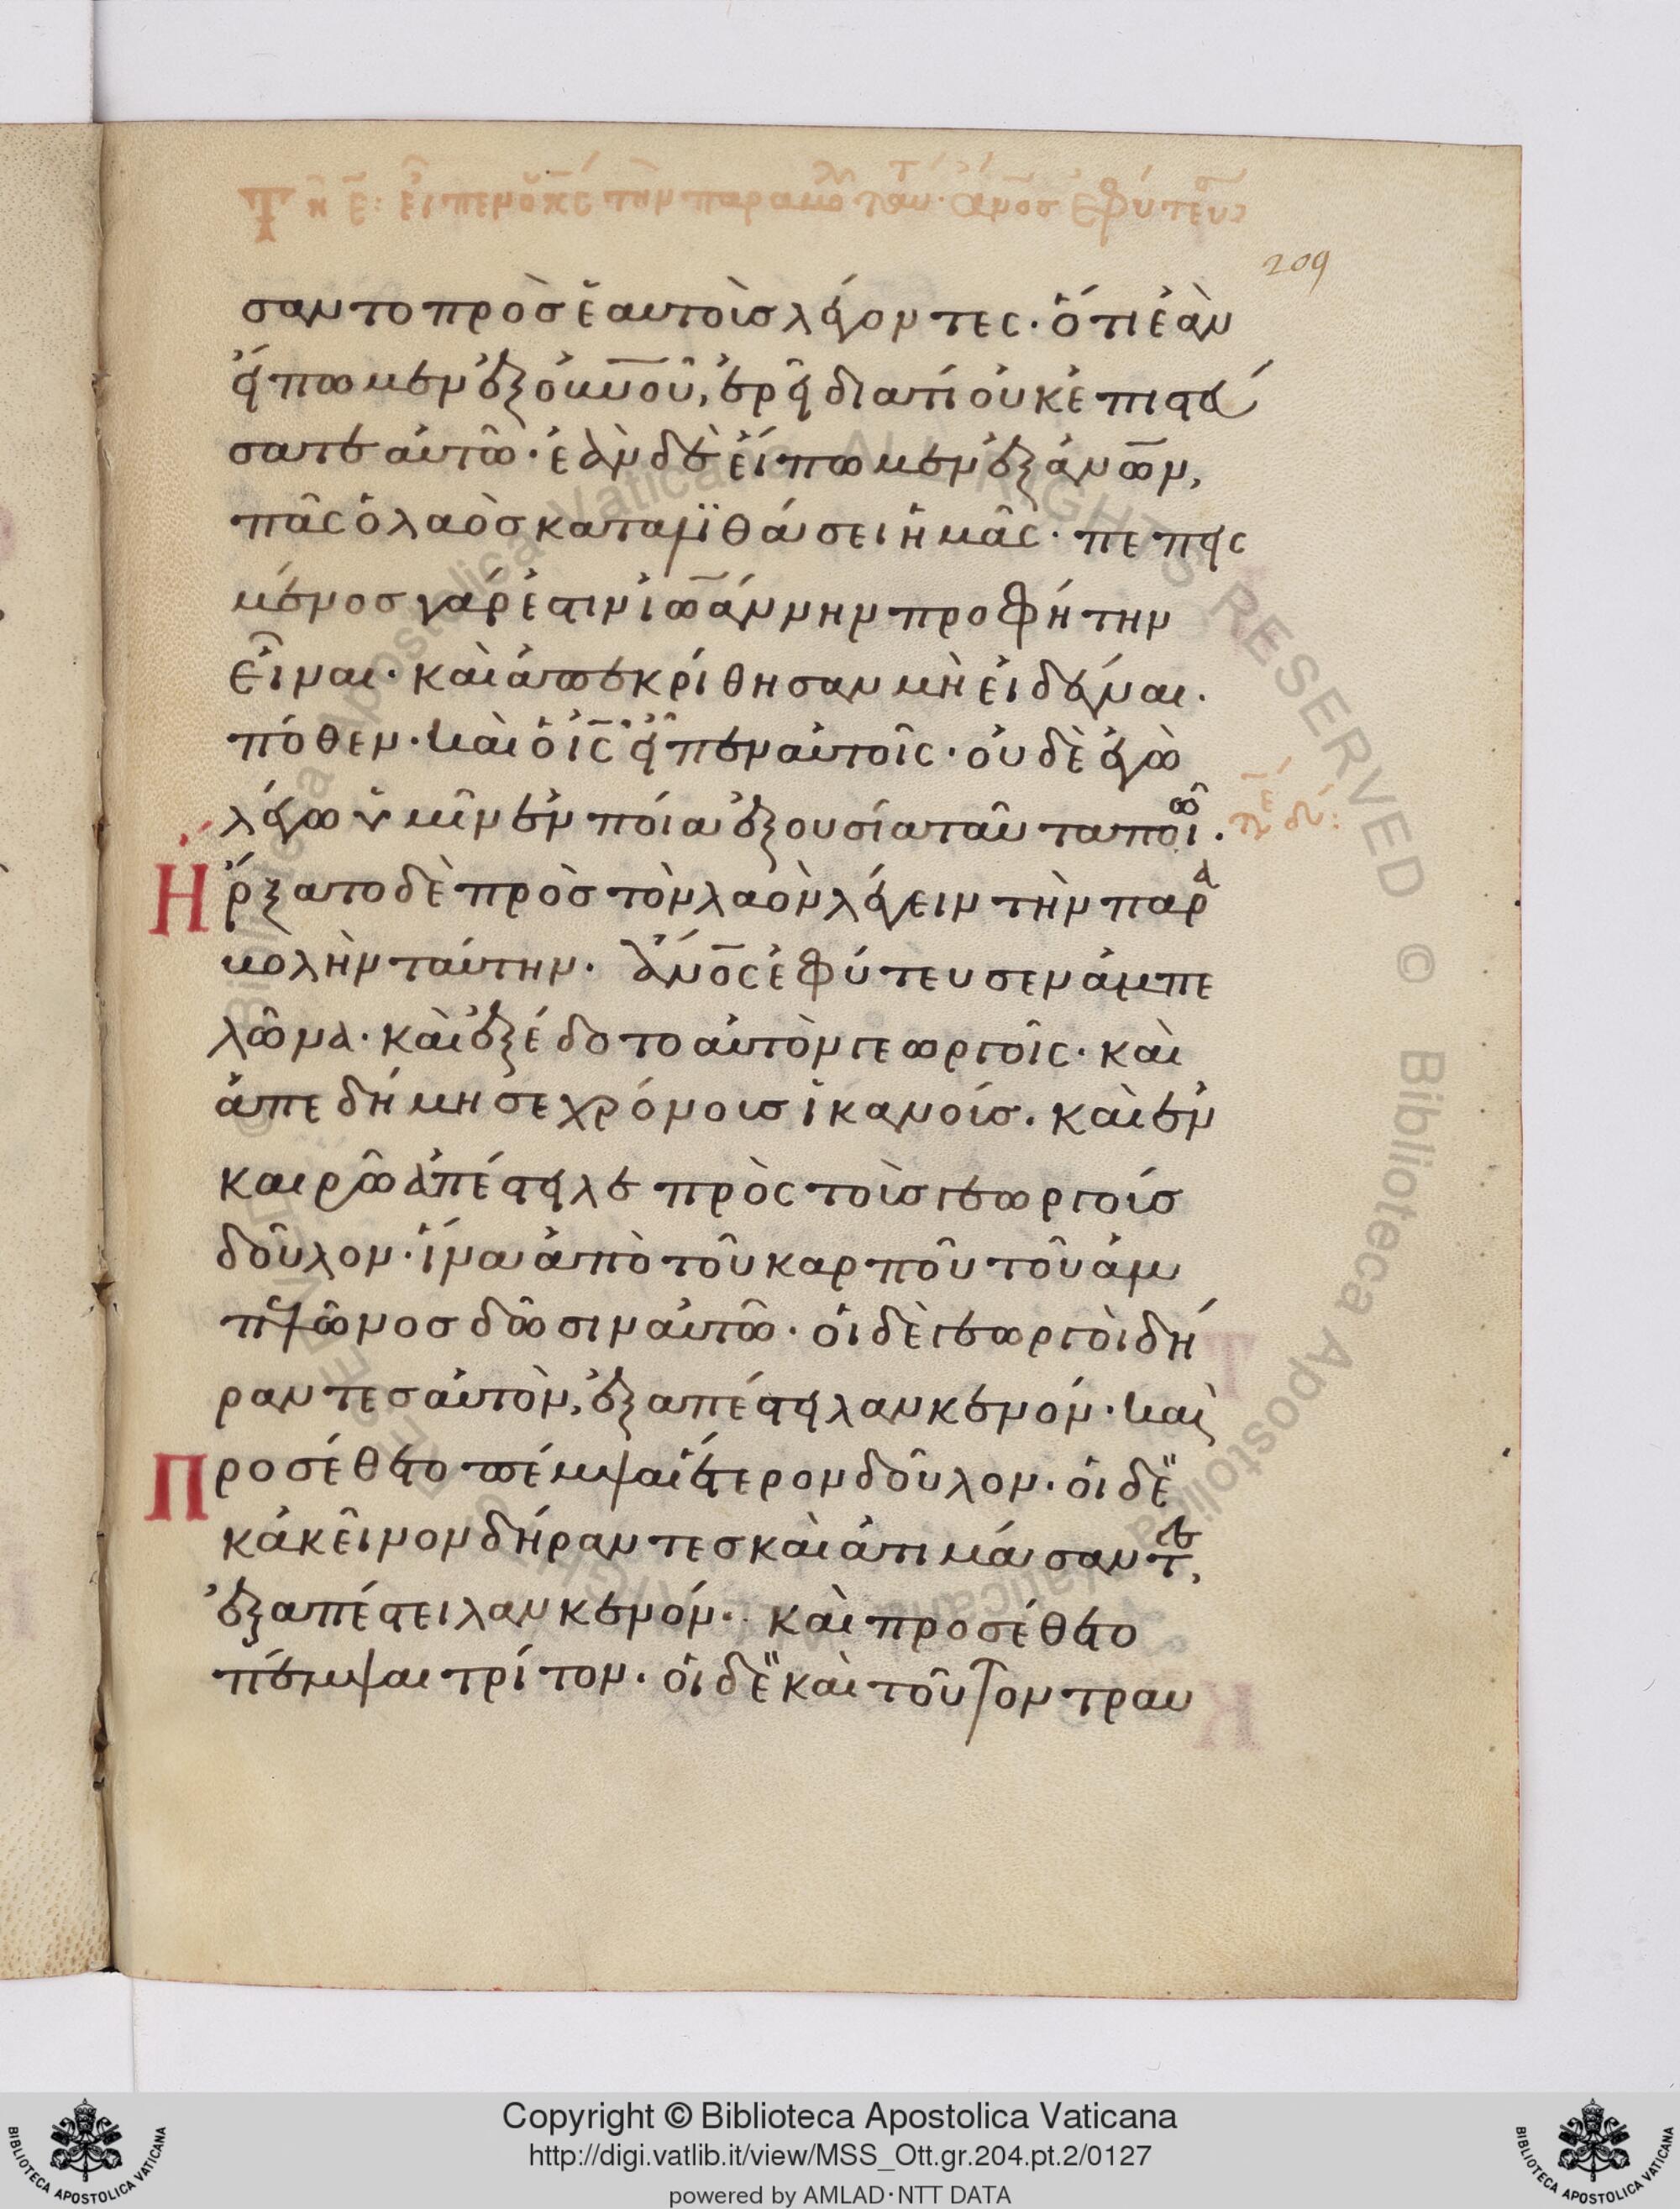 Τῆ ε̅: εἶπεν ὁ κ̅ς τὴν παραβολ ταύτ. ἄν̅ος ἐφύτευσ
209
σαντο πρὸσ ἑαυτοὺσ λέγοντες· ὅτι ἐὰν
εἴπωμεν ἐξ ο̅υ̅νοῦ, ἐρεῖ διατί οὐκ ἐπιστεύ
σατε αὐτῶ· ἐὰν δὲ εἴπωμεν ἐξ ἀν̅ω̅ν,
πᾶς ὁ λαὸσ καταλιθάσει ἡμᾶς· πεπεισ
μένοσ γάρ ἐστιν ἰω̅άννην προφήτην
εἶναι· καὶ ἀπεκρίθησαν μὴ εἰδέναι·
πόθεν· καὶ ὁ ι̅ς εἶπεν αὐτοῖς· οὐδὲ ἐγὼ
λέγω ὑμῖν ἐν ποία ἐξουσία ταῦτα ποιῶ.
τε δυ:
Ηρξατο δὲ πρὸσ τὸν λαὸν λέγειν τὴν παρα
βολὴν ταύτην· ἄν̅ο̅ς ἐφύτευσεν ἀμπε
λῶνα· καὶ ἐξέδοτο αὐτὸν γεωργοῖς· καὶ
ἀπεδήμησε χρόνοισ ἱκανοίσ. καὶ ἐν
καιρῶ ἀπέστειλε πρὸς τοὺσ γεωργούσ
δοῦλον· ἵνα ἀπὸ τοῦ καρποῦ τοῦ ἀμ
πελῶνοσ δῶσιν αὐτῶ· οἱ δὲ γεωργοὶ δή
ραντεσ αὐτὸν, ἐξαπέστειλαν κενόν· καὶ
Προσέθετο πέμψαι ἕτερον δοῦλον· οἱ δὲ
κἀκεῖνον δήραντεσ καὶ ἀτιμάσαντες,
ἐξαπέστειλαν κενόν· καὶ προσέθετο
πέμψαι τρίτον· οἱ δὲ καὶ τοῦτον τραυ
Copyright © Biblioteca Apostolica Vaticana
http://digi.vatlib.it/view/MSS_Ott.gr.204.pt.2/0127
powered by AMLAD·NTT DATA